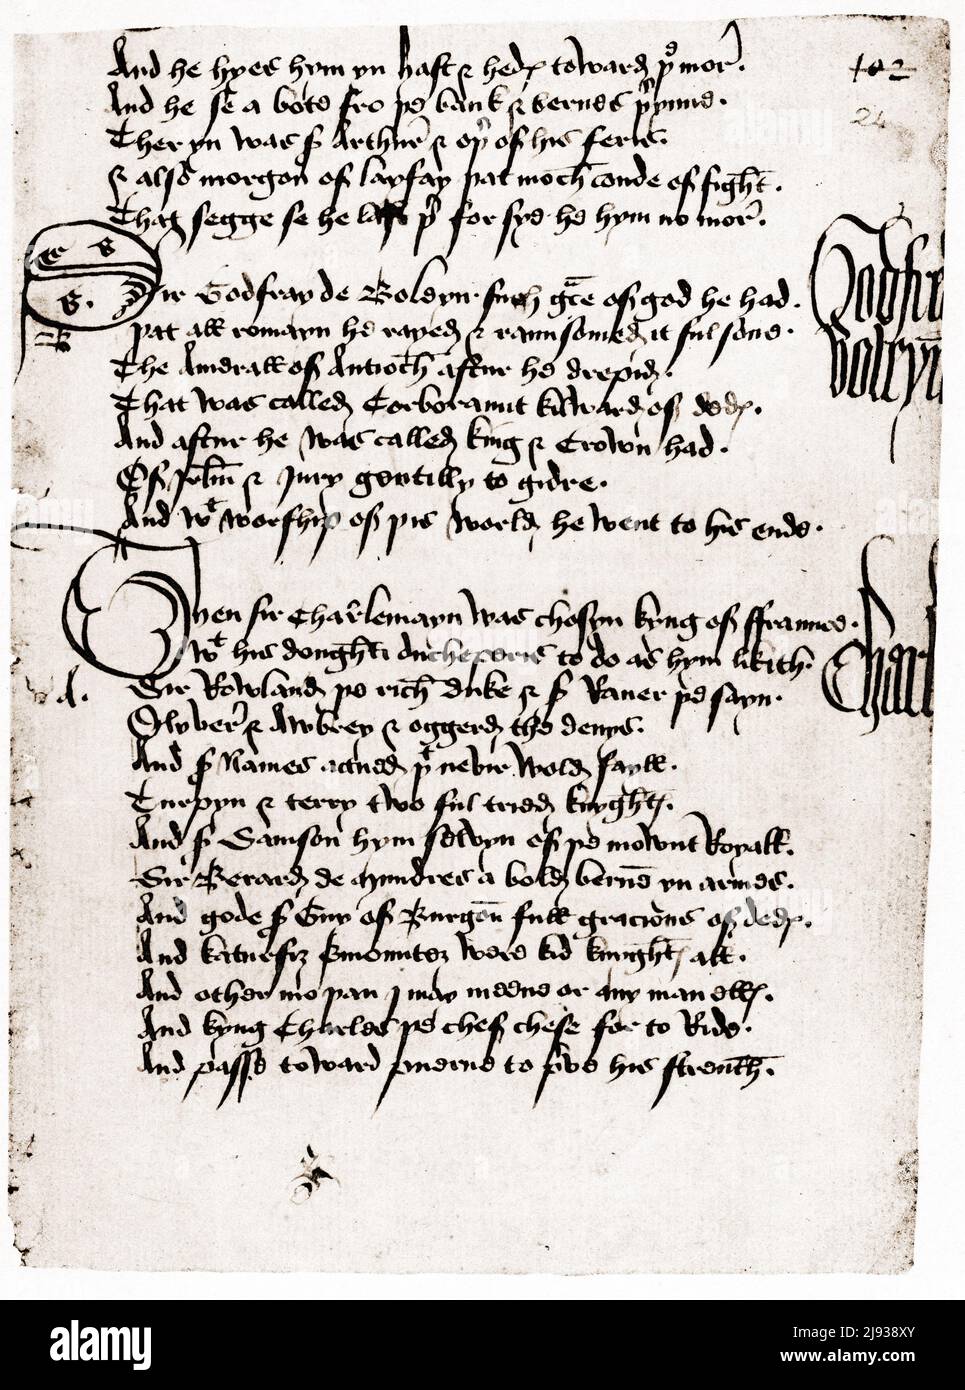 And he hyes hym yn hast & hedes toward þe mor.
And he se a bote fro þe bank & bernes þer ynne.
Ther yn was sir Arthure & oþer of his feris.
& also morgon of layfay þat moch conde of sight.
That segge se he last þer for sye he hym no mor.
102
24
Sir Godfray de Boleyn such grace of god he had.
þat all romayn he rayed & raunsomed it ful sone.
The Amerall of Antioch aftur he drepid.
That was called Corboraunt kilward of dedes.
And aftur he was called king & Crown had.
Of Jerusalem & Jury gentilly to gidre.
And wt worship of þis world he went to his ende.
Godfre
boleyn
When sir Charlemayn was chosyn kyng of ffraunce.
Wt his doughti ducheperis to do as hym likith.
Sir Rowland þe rich duke & sir Raner þe sayn.
Olyver & Awbrey & oggerd the denys.
And sir Names acued þt nevir wold fayll.
Turpyn & terry two ful tried knyghtes.
And sir Samson hym selvyn of þe mownt Royall.
Sir Berard de Mundres a bold berne yn armes.
And gode sir Guy of Burgon full gracious of dedes.
And katur fiz Emountez were kid knightes all.
And other mo þan J may mene or any man elles.
And kyng Charles þe chef chese for to Ride.
And passe toward pnerne to prve his strenth.
alamy
Image ID: 2J938XY
www.alamy.com